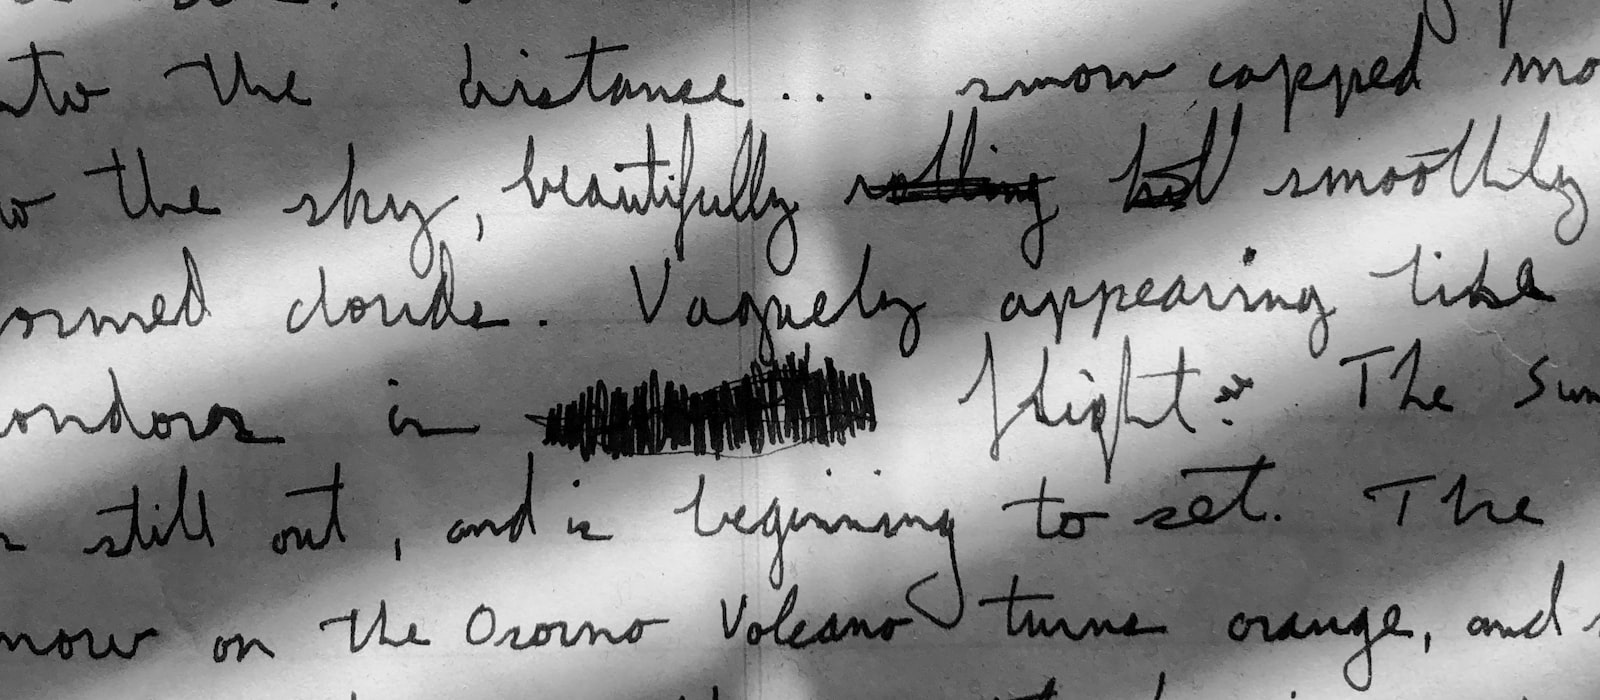 nto the distance... snow capped mo
o the sky, beautifully rolling but smoothly
ormed clouds. Vaguely appearing like
ondors in flight. The Sun
still out, and is beginning to set. The
now on the Osorno Volcano turns orange, and